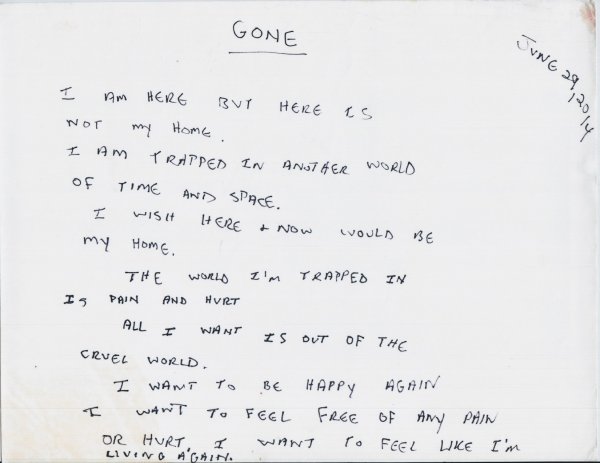 GONE
JUNE 29/2014
I AM HERE BUT HERE IS
NOT MY HOME.
I AM TRAPPED IN ANOTHER WORLD
OF TIME AND SPACE.
I WISH HERE + NOW WOULD BE
MY HOME.
THE WORLD I'M TRAPPED IN
IS PAIN AND HURT
ALL I WANT IS OUT OF THE
CRUEL WORLD.
I WANT TO BE HAPPY AGAIN
I WANT TO FEEL FREE OF ANY PAIN
OR HURT. I WANT TO FEEL LIKE I'M
LIVING AGAIN.